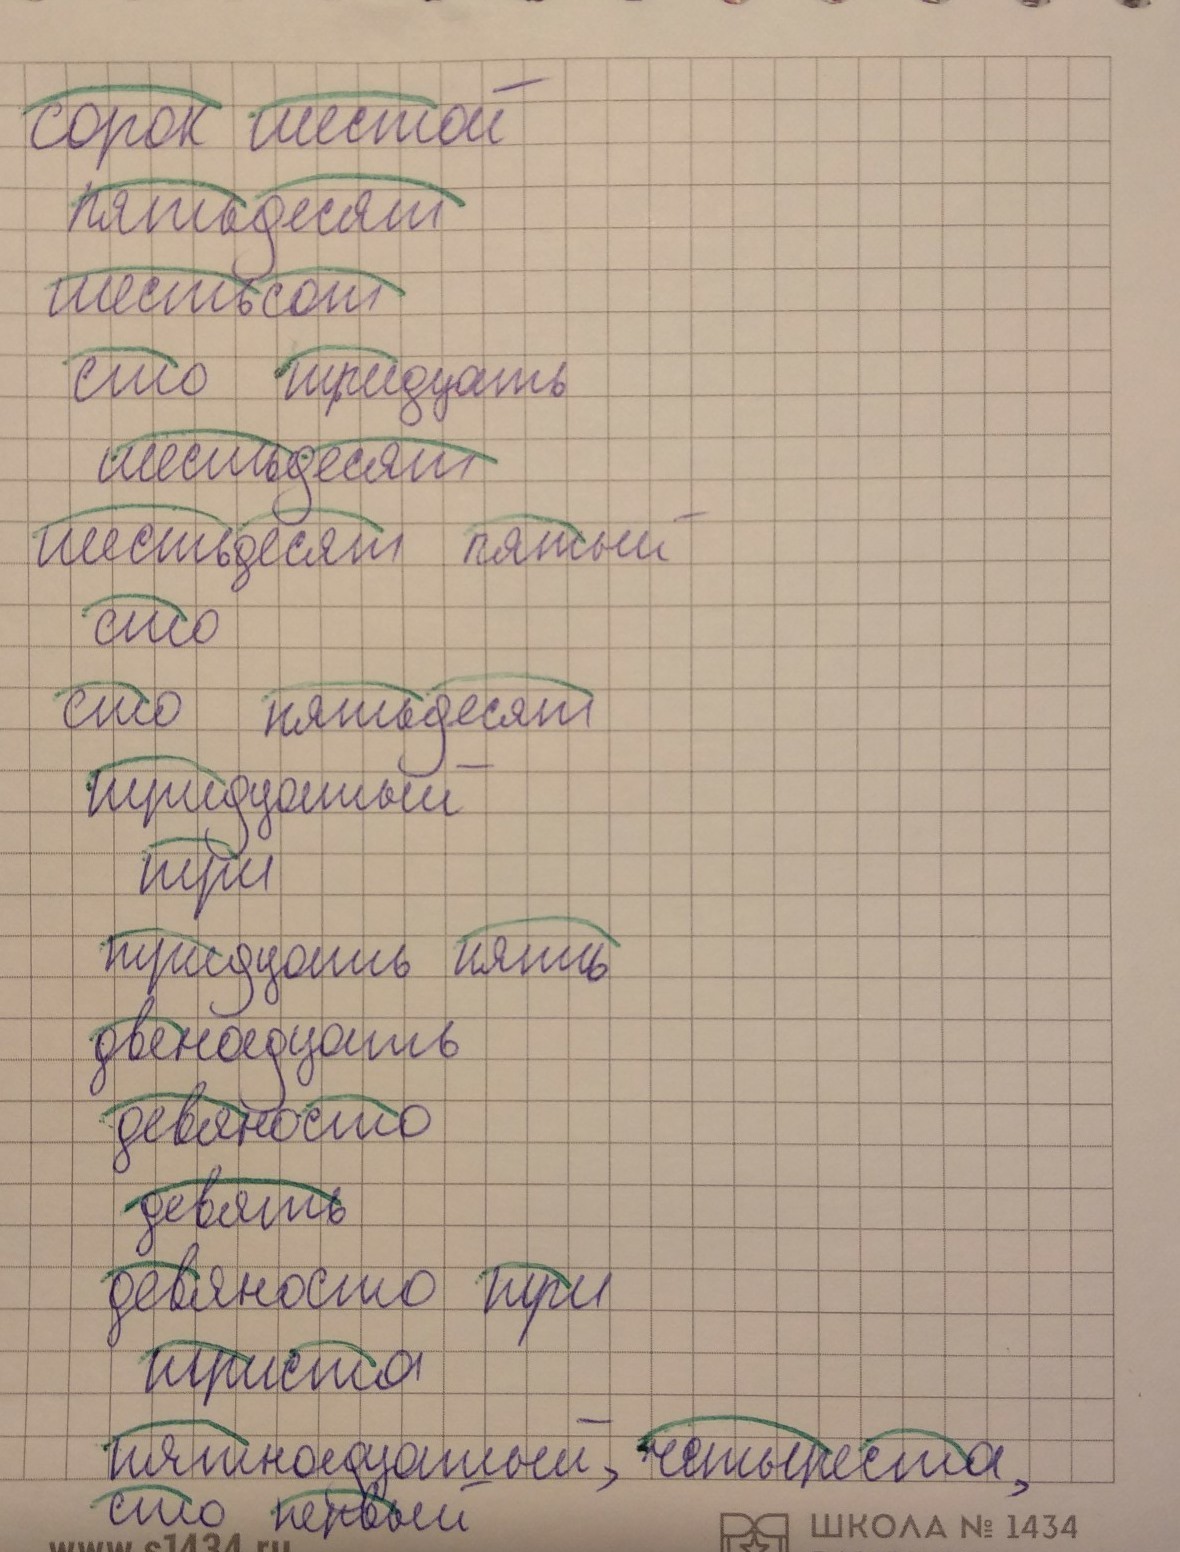 сорок шестой
пятьдесят
шестьсот
сто тридцать
шестьдесят
шестьдесят пятый
сто
сто пятьдесят
тридцатый
три
тридцать пять
двенадцать
девяносто
девять
девяносто три
триста
пятнадцатый, четыреста,
сто первый
www.s1434.ru
ШКОЛА № 1434